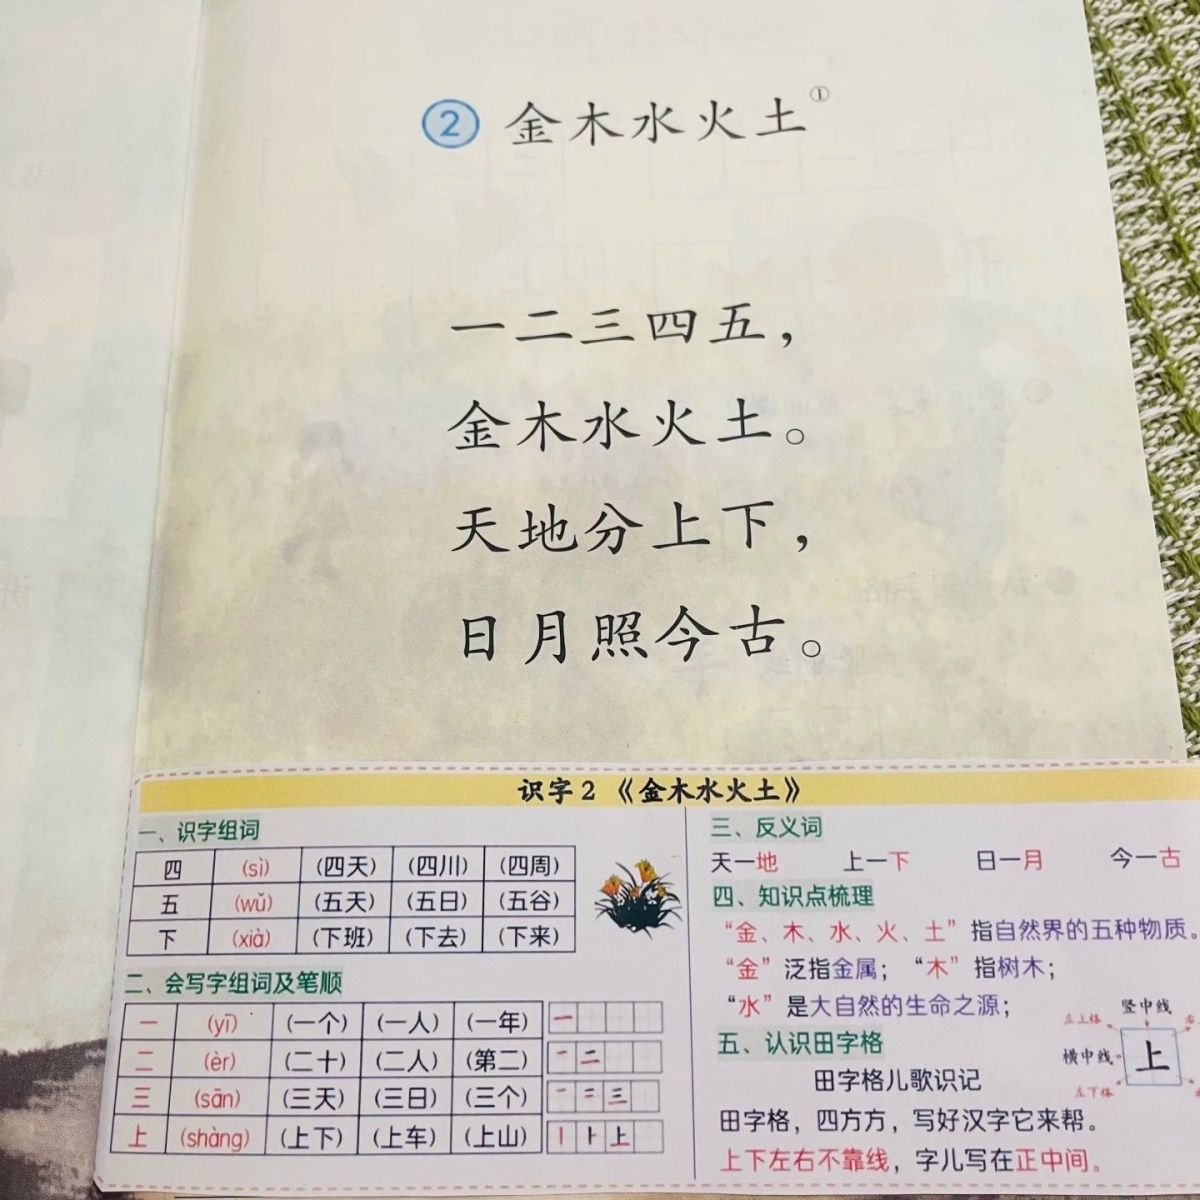 2 金木水火土①
一二三四五，
金木水火土。
天地分上下，
日月照今古。
识字2《金木水火土》
一、识字组词
四 (sì) (四天) (四川) (四周)
五 (wǔ) (五天) (五日) (五谷)
下 (xià) (下班) (下去) (下来)
二、会写字组词及笔顺
一 (yī) (一个) (一人) (一年) 一
二 (èr) (二十) (二人) (第二) 一 二
三 (sān) (三天) (三日) (三个) 一 二 三
上 (shàng) (上下) (上车) (上山) 丨 ⺊ 上
三、反义词
天—地 上—下 日—月 今—古
四、知识点梳理
“金、木、水、火、土”指自然界的五种物质。
“金”泛指金属；“木”指树木；
“水”是大自然的生命之源；
五、认识田字格
田字格儿歌识记
田字格，四方方，写好汉字它来帮。
上下左右不靠线，字儿写在正中间。
竖中线
左上格 右
横中线 上
左下格